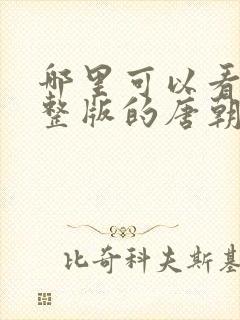 哪里可以看
整版的唐朝
比奇科夫斯基